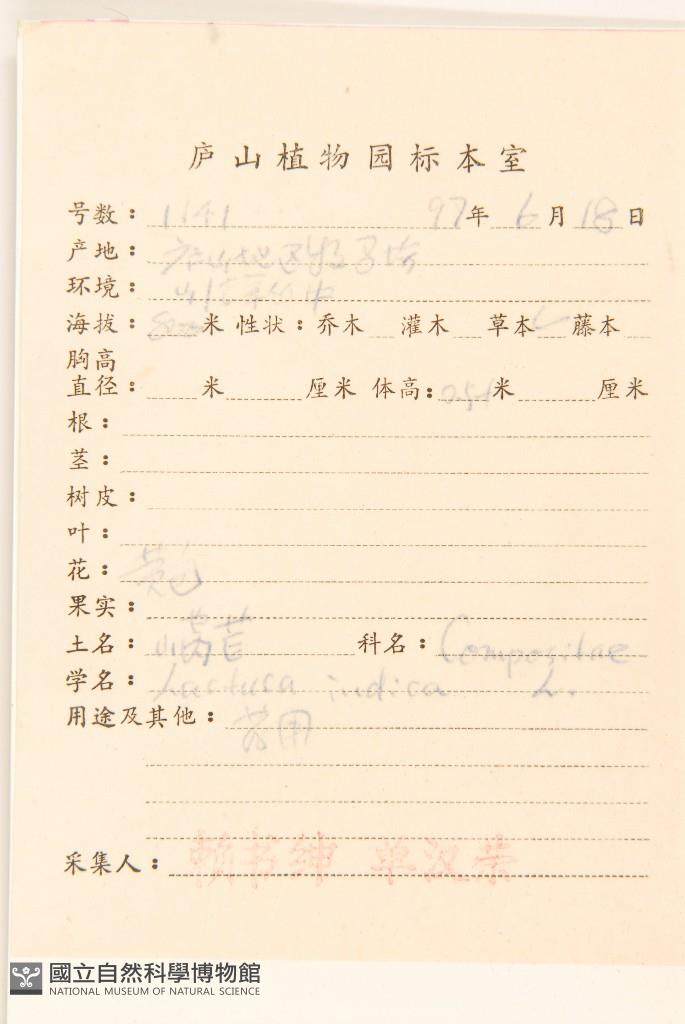 庐山植物园标本室
号数：1141 97年 6月 18日
产地：庐山地区
环境：
海拔：800米 性状：乔木 灌木 草本✓ 藤本
胸高
直径： 米 厘米 体高： 米 厘米
根：
茎：
树皮：
叶：
花：黄色
果实：
土名：山莴苣 科名：Compositae
学名：Lactuca indica L.
用途及其他：药用
采集人：赖书绅 单汉荣
國立自然科學博物館
NATIONAL MUSEUM OF NATURAL SCIENCE